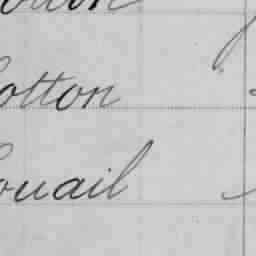 Cotton
Couail